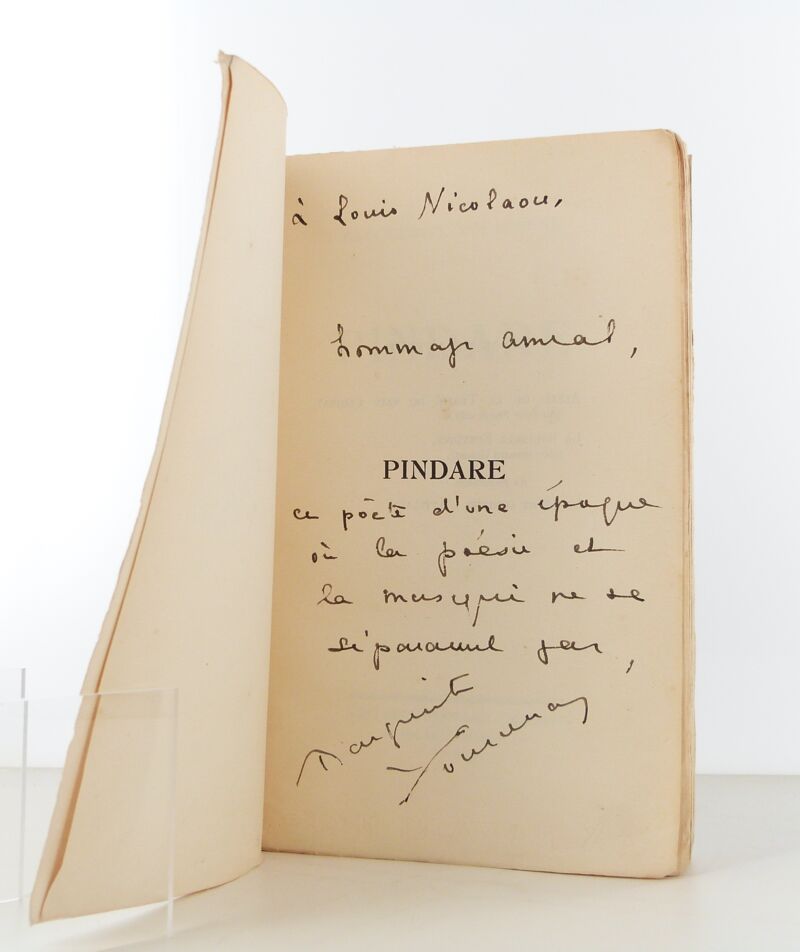 à Louis Nicolaou,
hommage amical,
PINDARE
ce poète d'une époque
où la poésie et
la musique ne se
séparaient pas,
Marguerite
Yourcenar